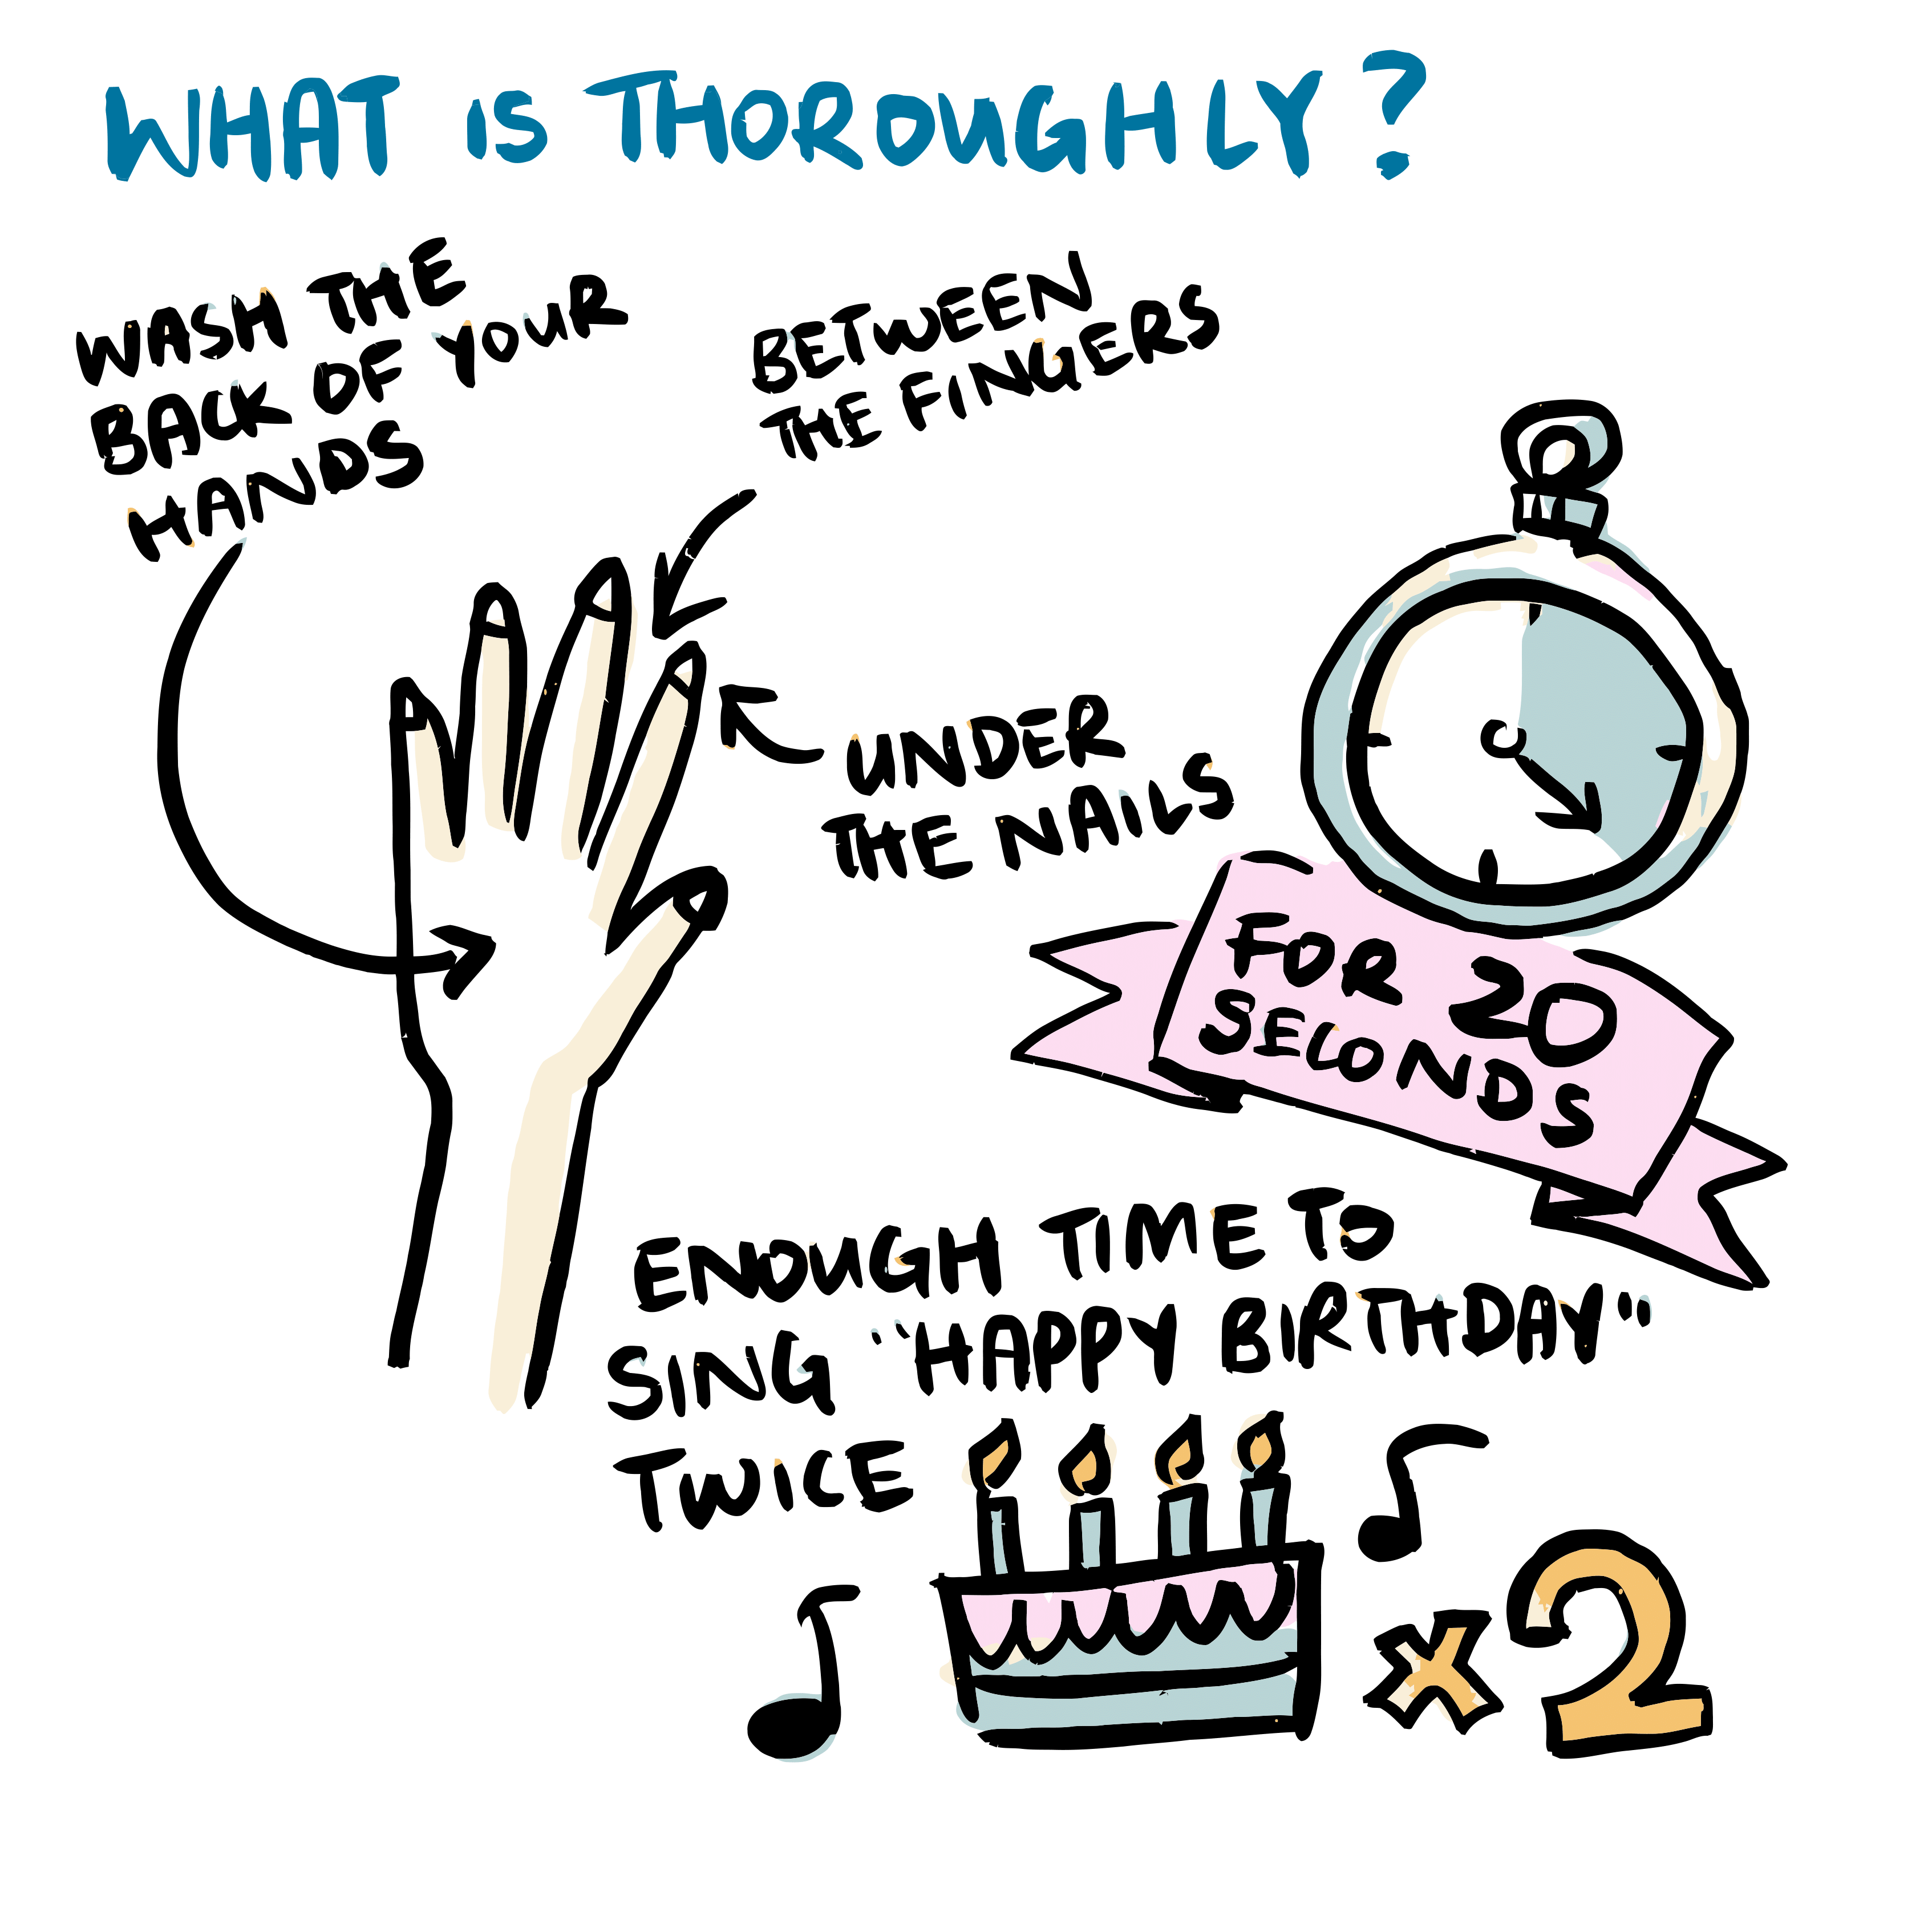 WHAT is THOROUGHLY?
WASH THE
BACK OF YOUR
HANDS
BETWEEN
THE FINGERS
UNDER
THE NAILS
FOR 20
SECONDS
ENOUGH TIME TO
SING "HAPPY BIRTHDAY"
TWICE
x2